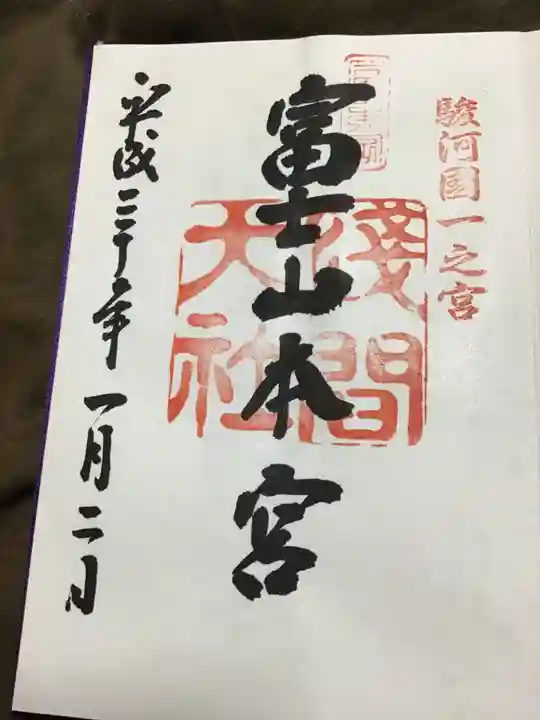 駿河國一之宮
富士山本宮
淺間大社
平成三十年一月二日